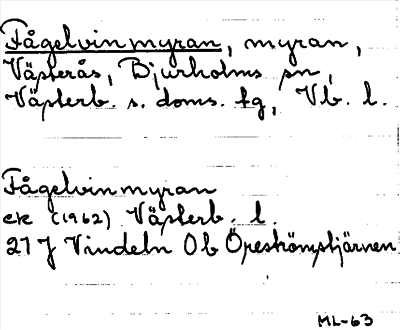 Fågelvinmyran, myran,
Västerås, Bjurholms sn,
Västerb. s. doms. fg, Vb. l.
Fågelvinmyran
ek (1962) Västerb. l.
21 J Vindeln Ob Öreströmstjärnen
ML-63